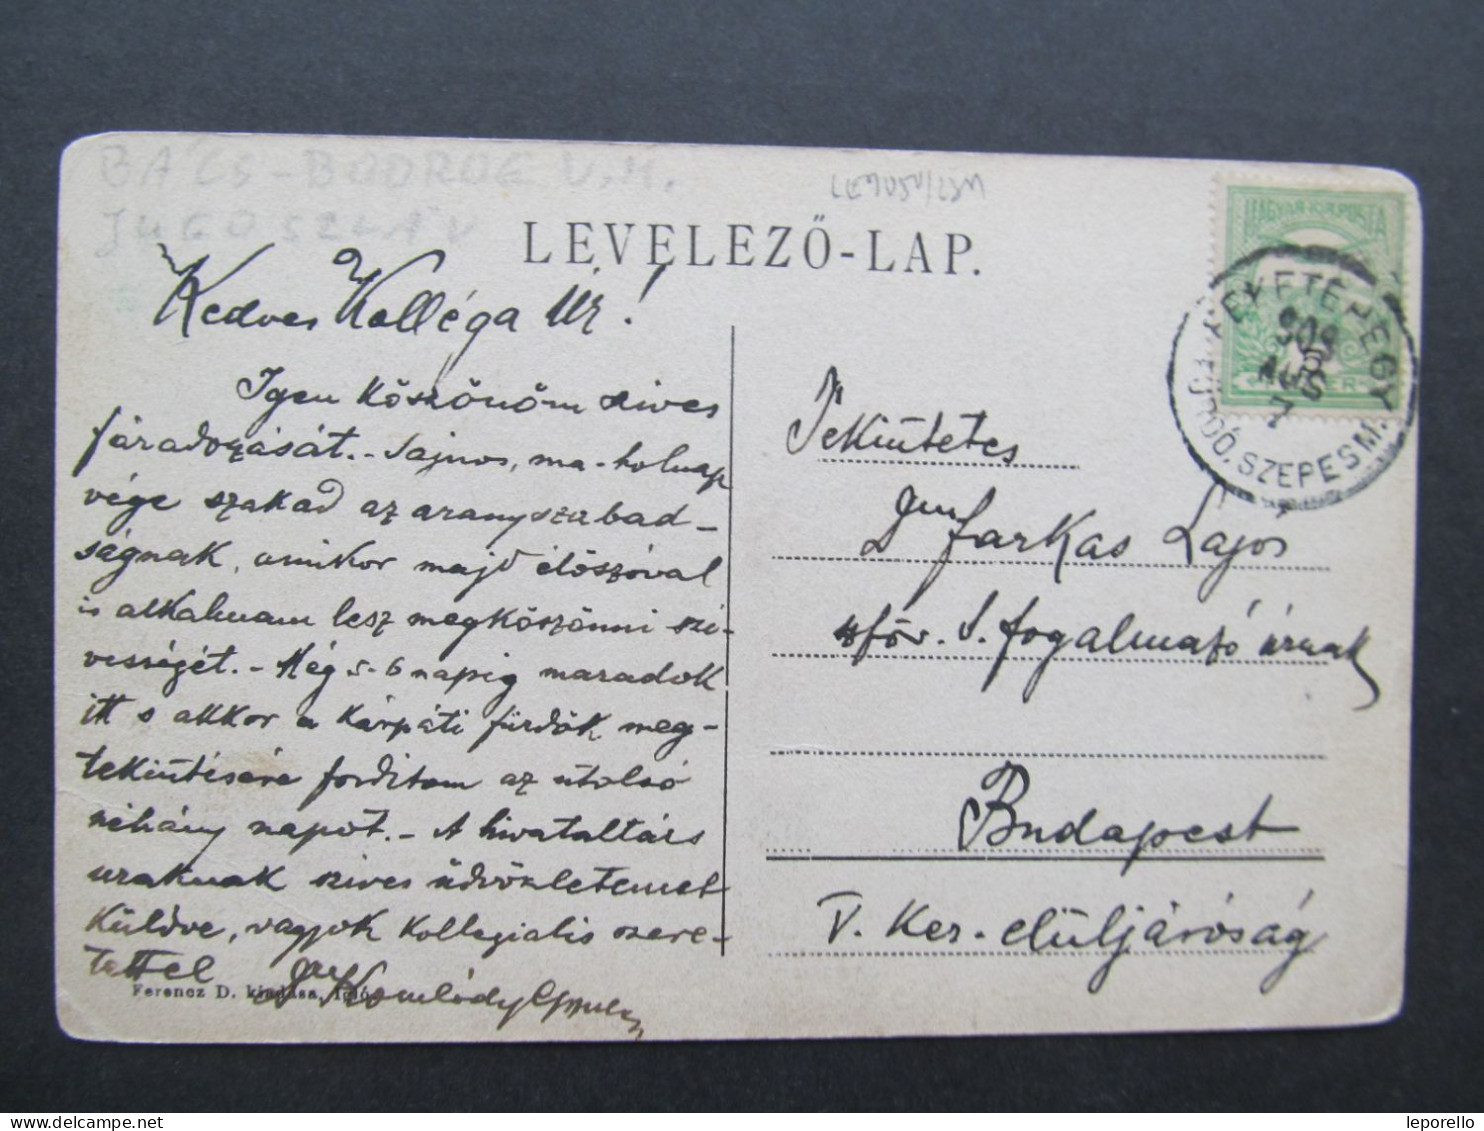 BÁCS-BODROG V.M.
JUGOSZLÁV
LEVELEZŐ-LAP.
MAGYAR KIR. POSTA
FEKETEHEGY
908
AUG
7
FÜRDŐ, SZEPES M.
Kedves Kolléga Úr!
Igen köszönöm szives
fáradozását. - Sajnos, ma-holnap
vége szakad az aranyszabad-
ságnak, amikor majd élőszóval
is alkalmam lesz megköszönni szi-
vességét. - Még 5-6 napig maradok
itt s akkor a kárpáti fürdők meg-
tekintésére forditom az utolsó
néhány napot. - A hivataltárs
uraknak szives üdvözletemet
küldve, vagyok kollegialis szere-
tettel
Komlódy Gyula
Ferencz D. kiadása, Igló
Tekintetes
Farkas Lajos
szföv. s. fogalmazó úrnak
Budapest
V. Ker. elüljáróság
leporello